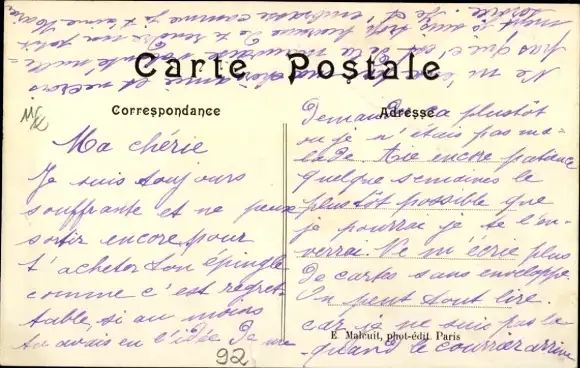 Carte Postale
Correspondance
Ma chérie
Je suis toujours
souffrante et ne peux
sortir encore pour
t'acheter ton épingle
comme c'est regret-
table, si au moins
tu avais eu l'idée de me
Adresse
demander ça plustôt
ou je n'étais pas ma-
lade. Aie encore patience
quelque semaines le
plustôt possible que
je pourrai je te l'en-
verrai. Ne m'écrie plus
de cartes sans enveloppe
On peut tout lire.
car je ne suis pas là
quand le courrier arrive
Ne m'
pas que c'est de la mauvaise
mont je suis trop
sortir. Je t'embrasse comme je t'aime
E. Malcuit, phot-édit Paris
92